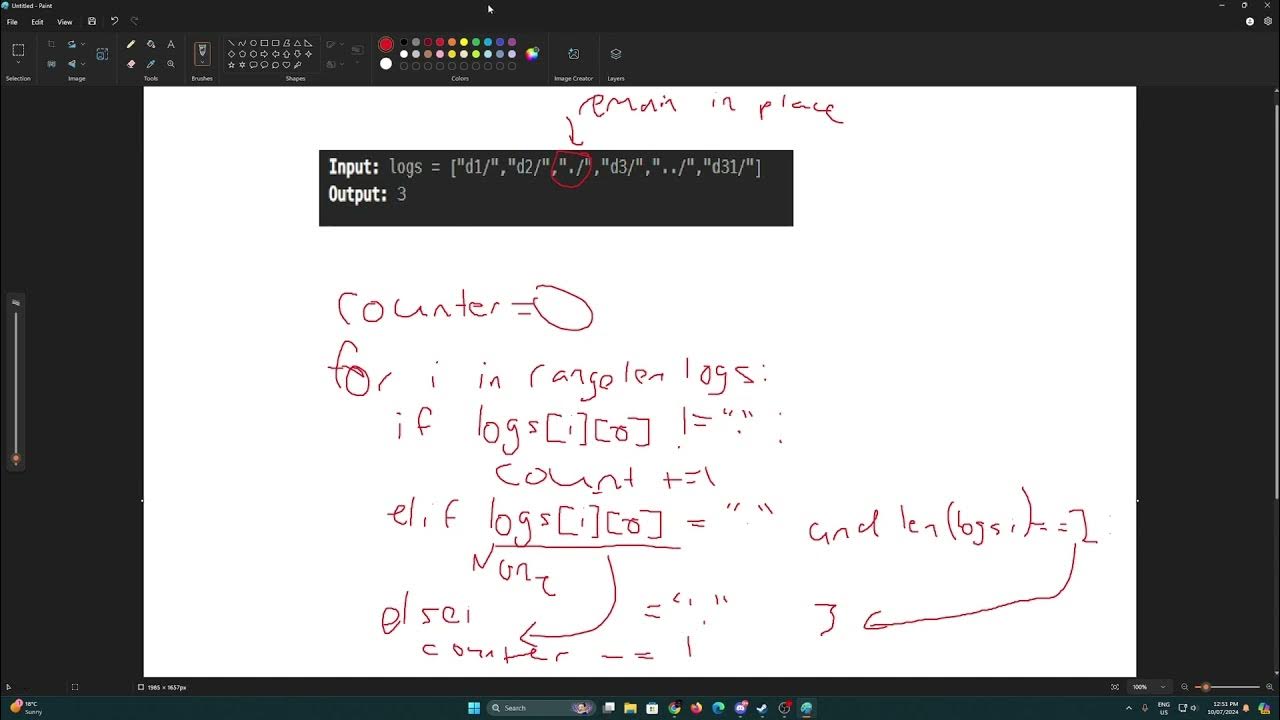 Untitled - Paint
File Edit View
Selection Image Tools Brushes Shapes Colors Image Creator Layers
remain in place
Input: logs = ["d1/","d2/","./","d3/","../","d31/"]
Output: 3
counter=0
for i in rangelen logs:
if logs[i][0] != "." :
count +=1
elif logs[i][0] = "." and len(logsi)==2:
None
else: = "." 3
counter -= 1
1985 × 1657px 100%
18°C
Sunny
Search
ENG
US
12:51 PM
10/07/2024